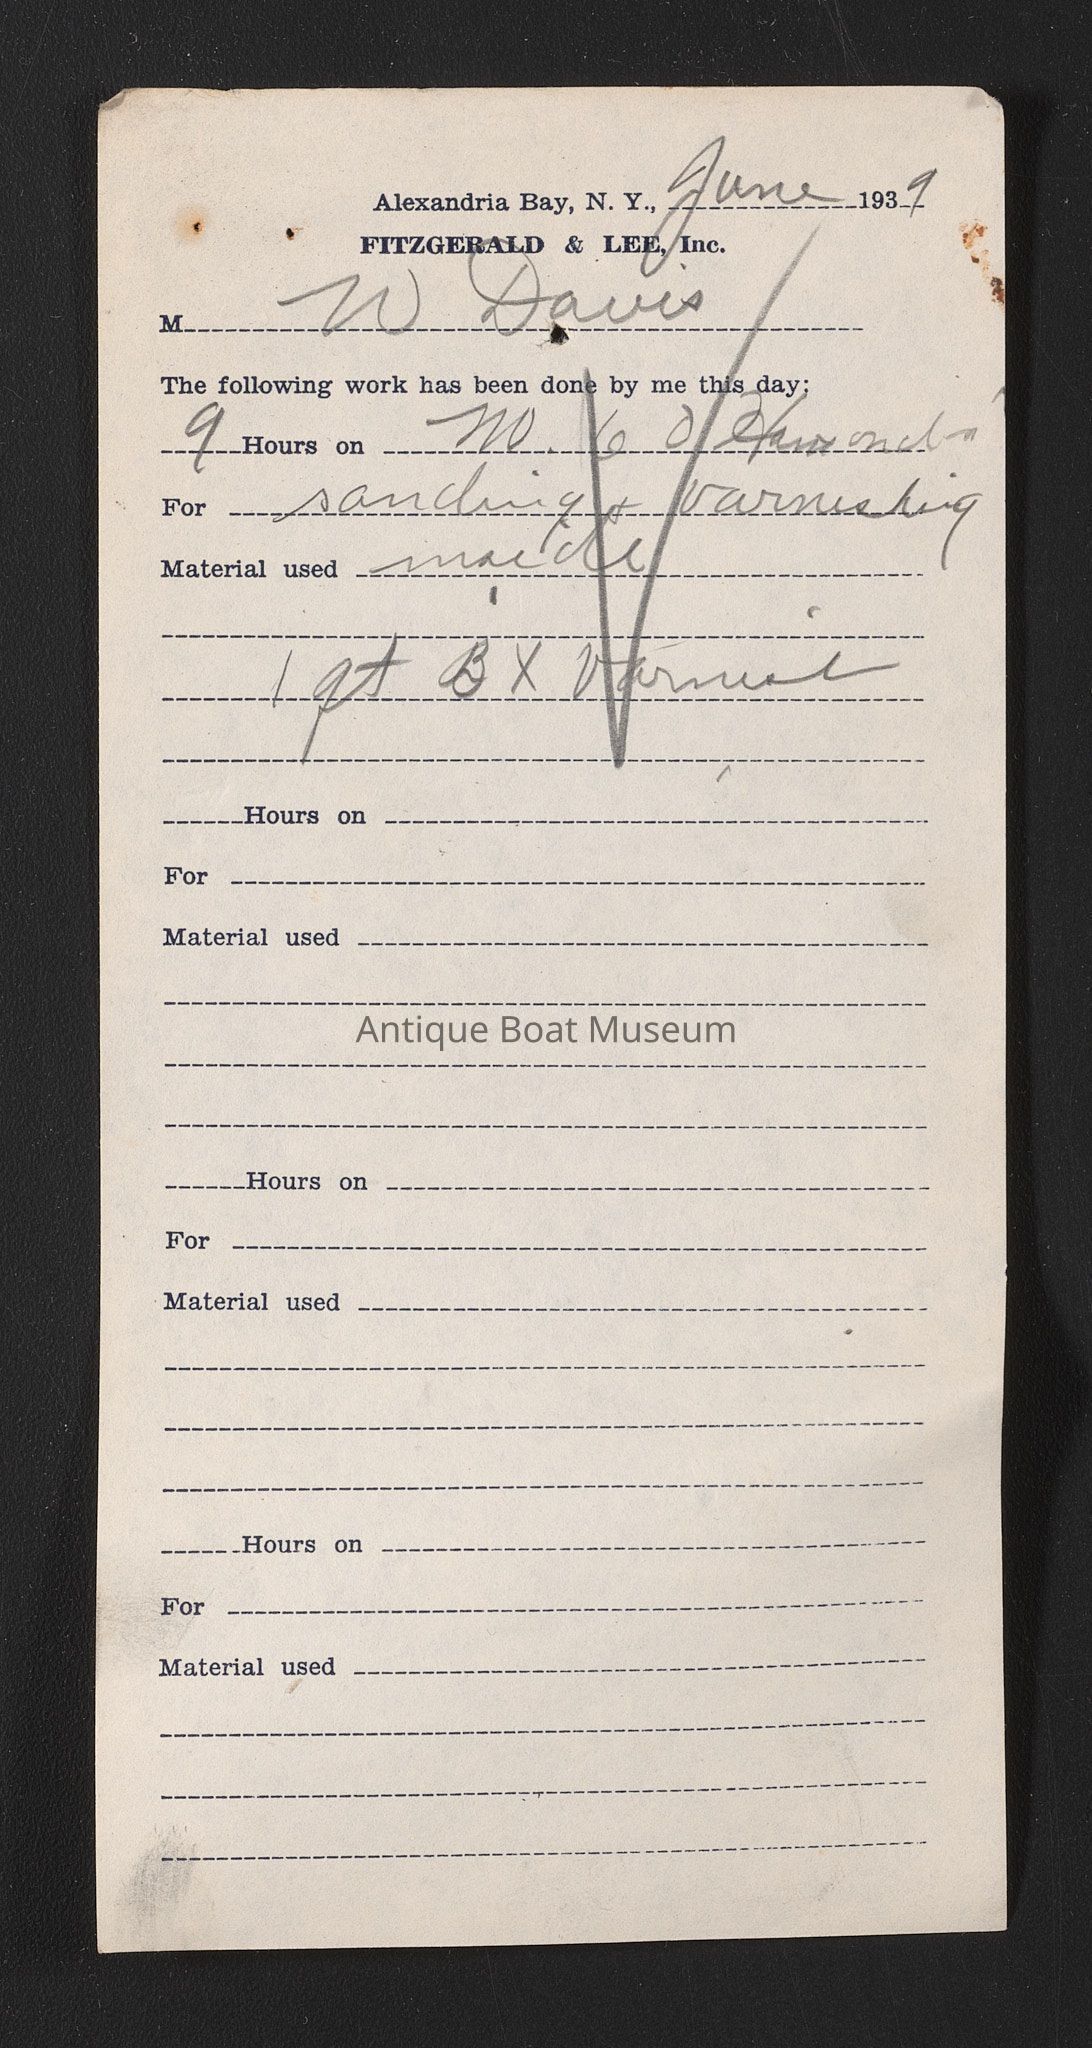 Alexandria Bay, N. Y., June 1939
FITZGERALD & LEE, Inc.
M W Davis
The following work has been done by me this day:
9 Hours on
For sanding & varnishing
Material used inside
1 qt B X Varnish
Hours on
For
Material used
Antique Boat Museum
Hours on
For
Material used
Hours on
For
Material used